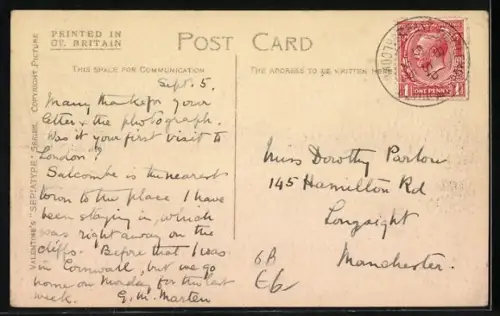 PRINTED IN
GT. BRITAIN
POST CARD
THIS SPACE FOR COMMUNICATION
THE ADDRESS TO BE WRITTEN HERE
VALENTINE'S "SEPIATYPE" SERIES. COPYRIGHT PICTURE
Sept. 5.
Many thanks for your
letter & the photograph.
Was it your first visit to
London?
Salcombe is the nearest
town to the place I have
been staying in, which
was right away on the
cliffs. Before that I was
in Cornwall, but we go
home on Monday for the last
week. G. M. Marten
ONE PENNY
Miss Dorothy Parlow
145 Hamilton Rd
Longsight
Manchester.
6A
£6-